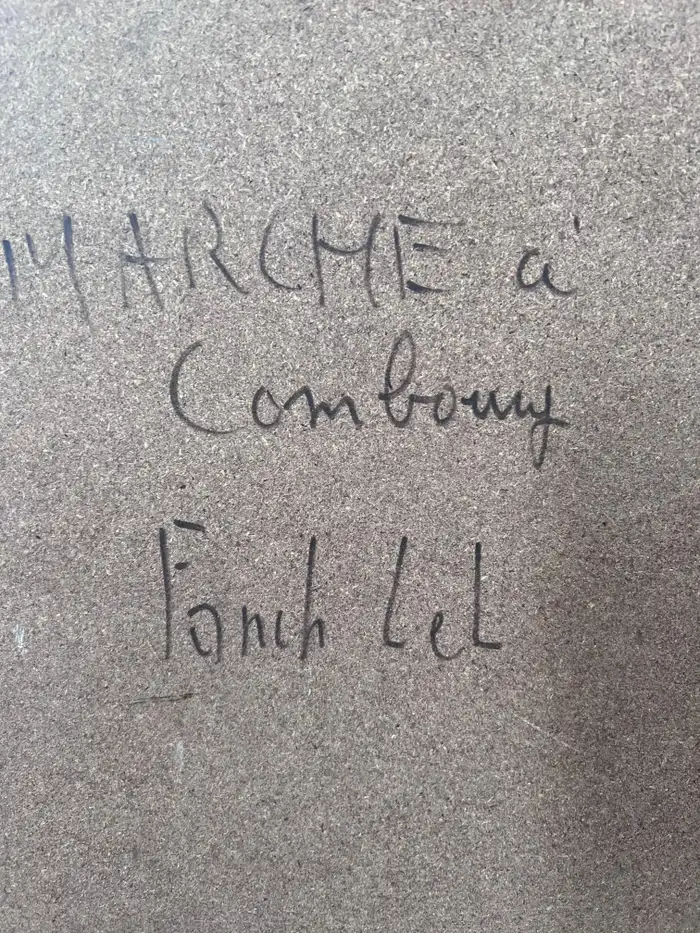 MARCHE à
Combourg
Fanch Lel